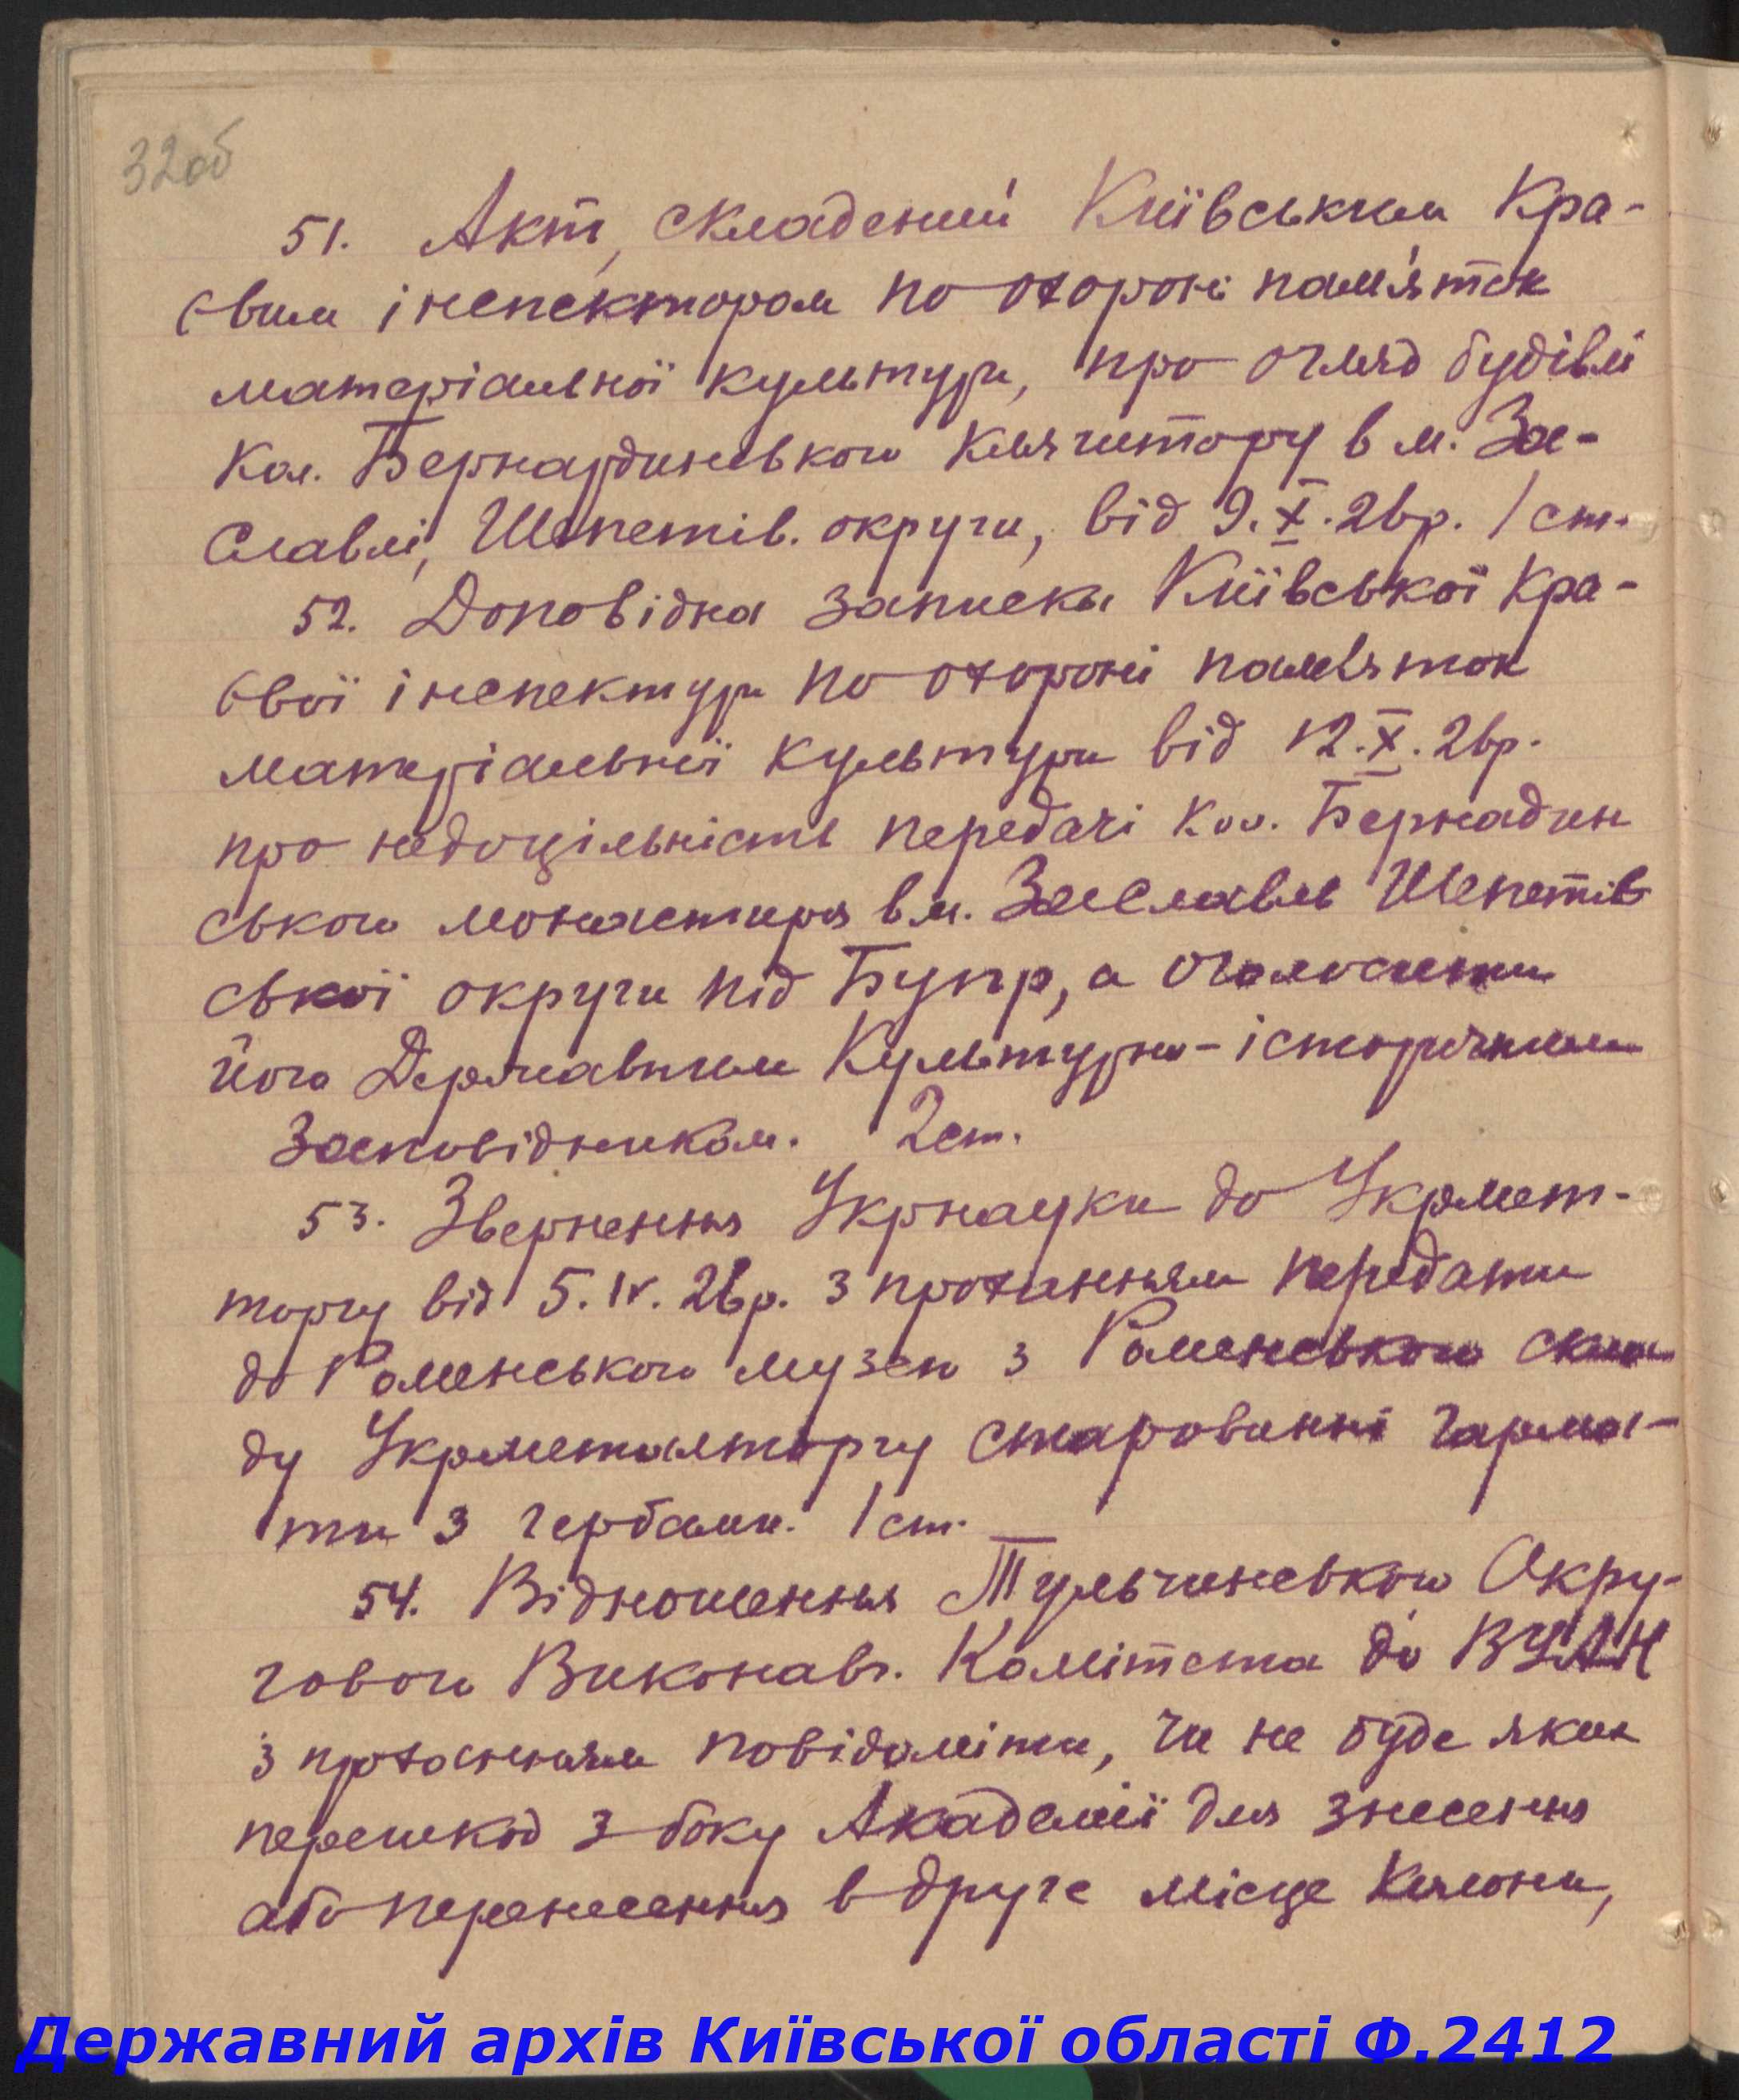 32об
51. Акт, складений Київським Кра-
євим інспектором по охороні пам'яток
матеріальної культури, про огляд будівлі
кол. Бернардинського кляштору в м. За-
славлі, Шепетів. округи, від 9.X.26р. 1 ст.
52. Доповідна записка Київської Кра-
євої інспектури по охороні пам'яток
матеріальної культури від 12.X.26р.
про недоцільність передачі кол. Бернадин
ського монастиря в м. Заславль Шепетів
ської округи під Бупр, а оголосити
його Державним Культурно-історичним
Заповідником. 2 ст.
53. Звернення Укрнауки до Укрмет-
торгу від 5.IV.26р. з проханням передати
до Роменського музею з Роменського скла
ду Укрметалторгу старовинні гарма-
ти з гербами. 1 ст.
54. Відношення Тульчинського Окру-
гового Виконавч. Комітета до ВУАН
з проханням повідоміти, чи не буде яких
перешкод з боку Академії для знесення
або перенесення в друге місце Колони,
Державний архів Київської області Ф.2412